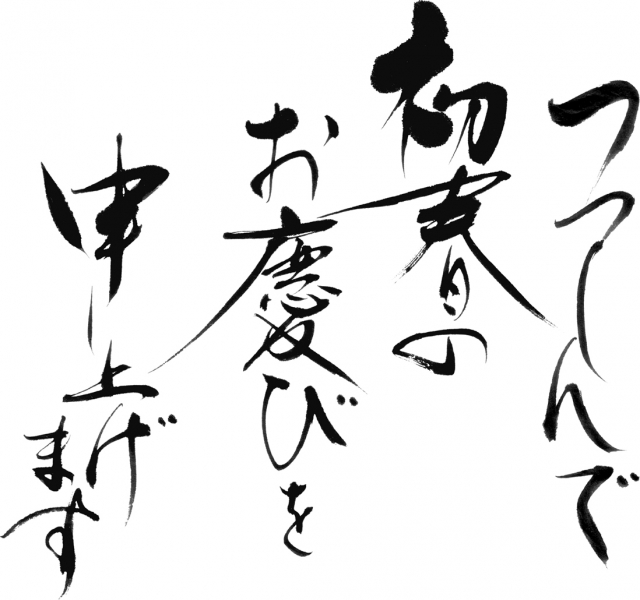 つつしんで
初春の
お慶びを
申し上げ
ます